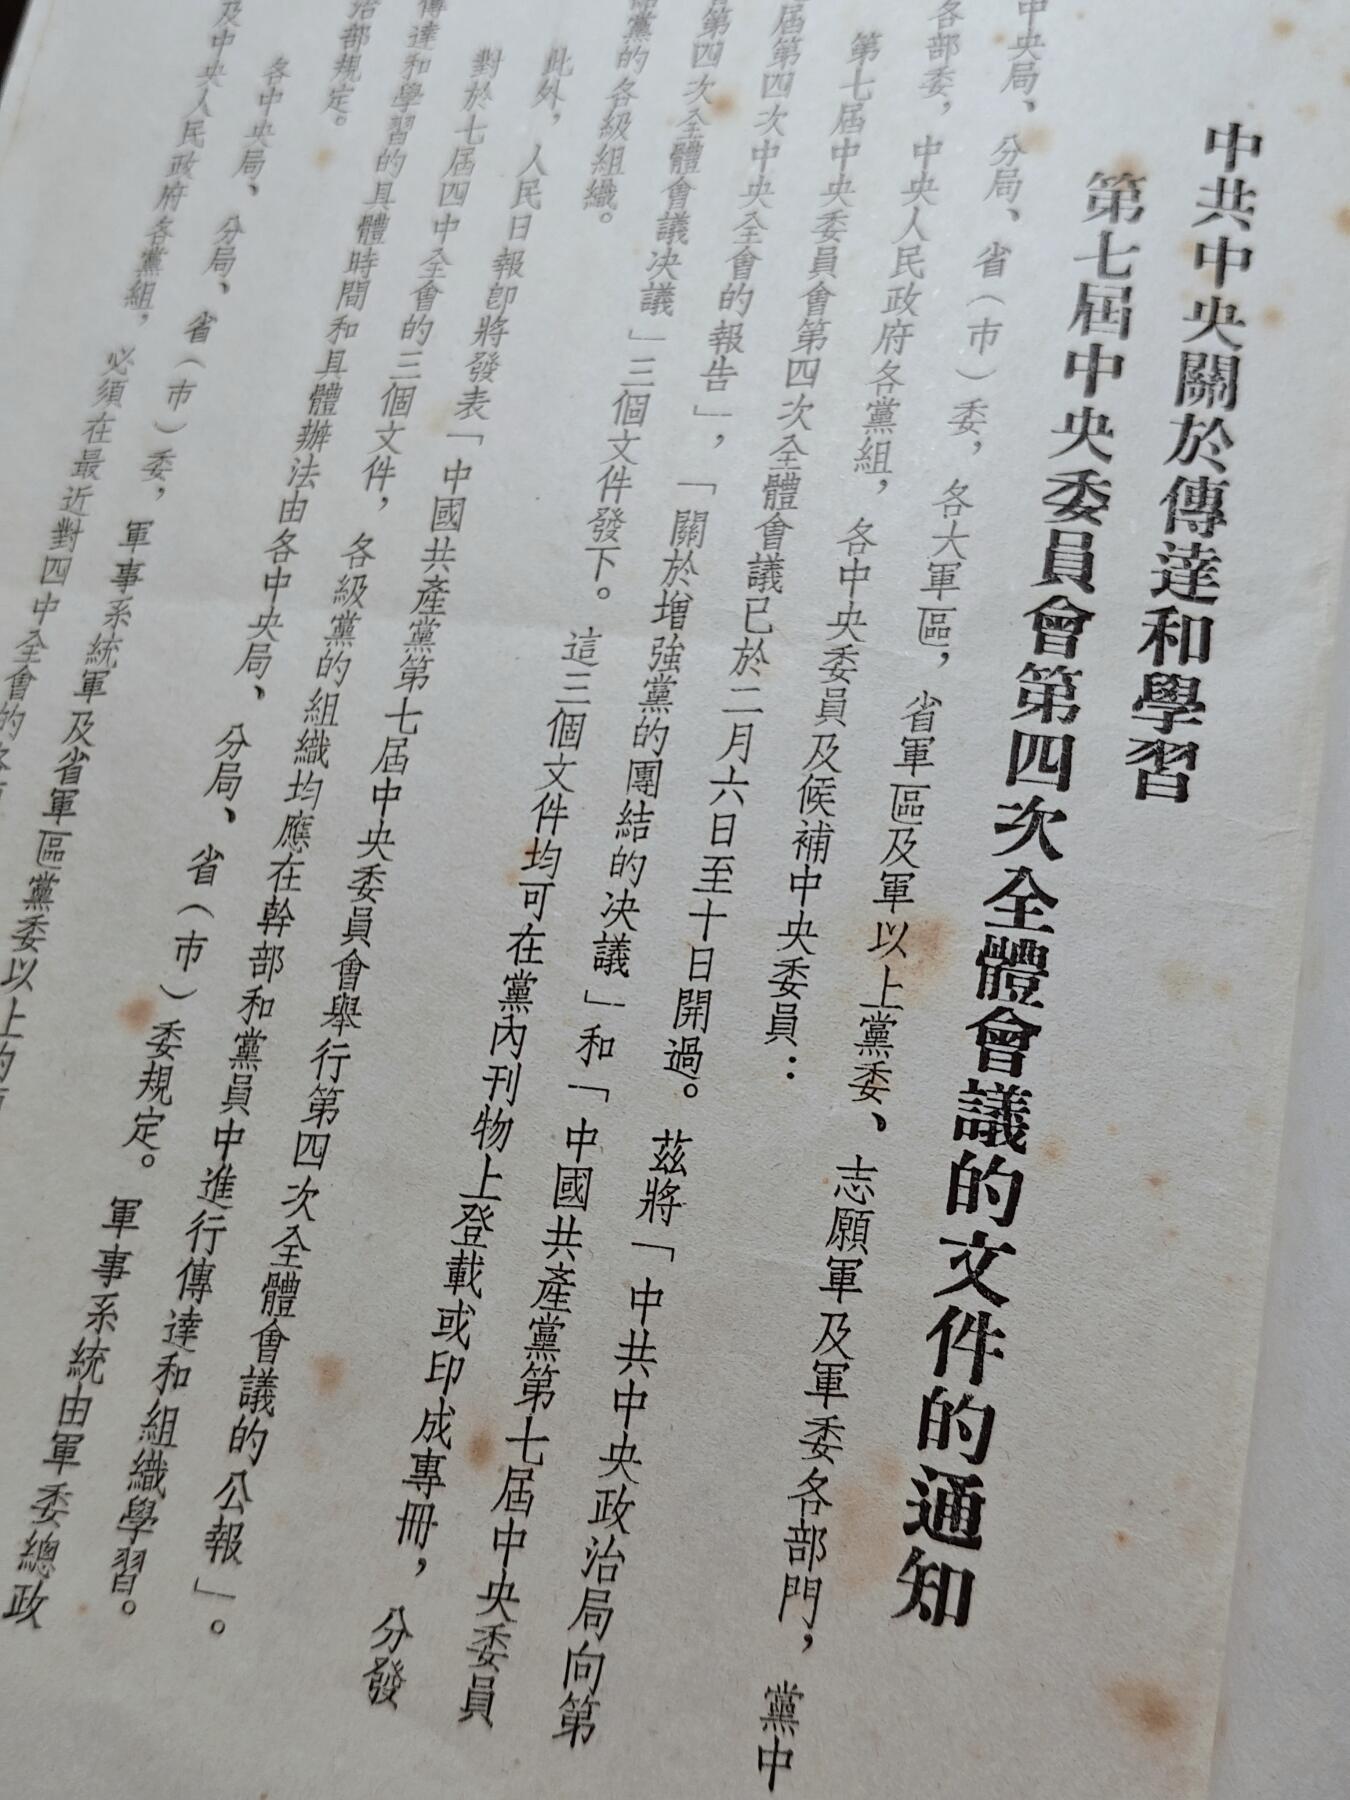 中共中央關於傳達和學習
第七屆中央委員會第四次全體會議的文件的通知
中央局、分局、省（市）委，各大軍區，省軍區及軍以上黨委、志願軍及軍委各部門，黨中
各部委，中央人民政府各黨組，各中央委員及候補中央委員：
第七屆中央委員會第四次全體會議已於二月六日至十日開過。茲將「中共中央政治局向第
屆第四次中央全會的報告」，「關於增強黨的團結的決議」和「中國共產黨第七屆中央委員
第四次全體會議決議」三個文件發下。這三個文件均可在黨內刊物上登載或印成專冊，分發
黨的各級組織。
此外，人民日報卽將發表「中國共產黨第七屆中央委員會舉行第四次全體會議的公報」。
對於七屆四中全會的三個文件，各級黨的組織均應在幹部和黨員中進行傳達和組織學習。
傳達和學習的具體時間和具體辦法由各中央局、分局、省（市）委規定。軍事系統由軍委總政
治部規定。
各中央局、分局、省（市）委，軍事系統軍及省軍區黨委以上的
及中央人民政府各黨組，必須在最近對四中全會的